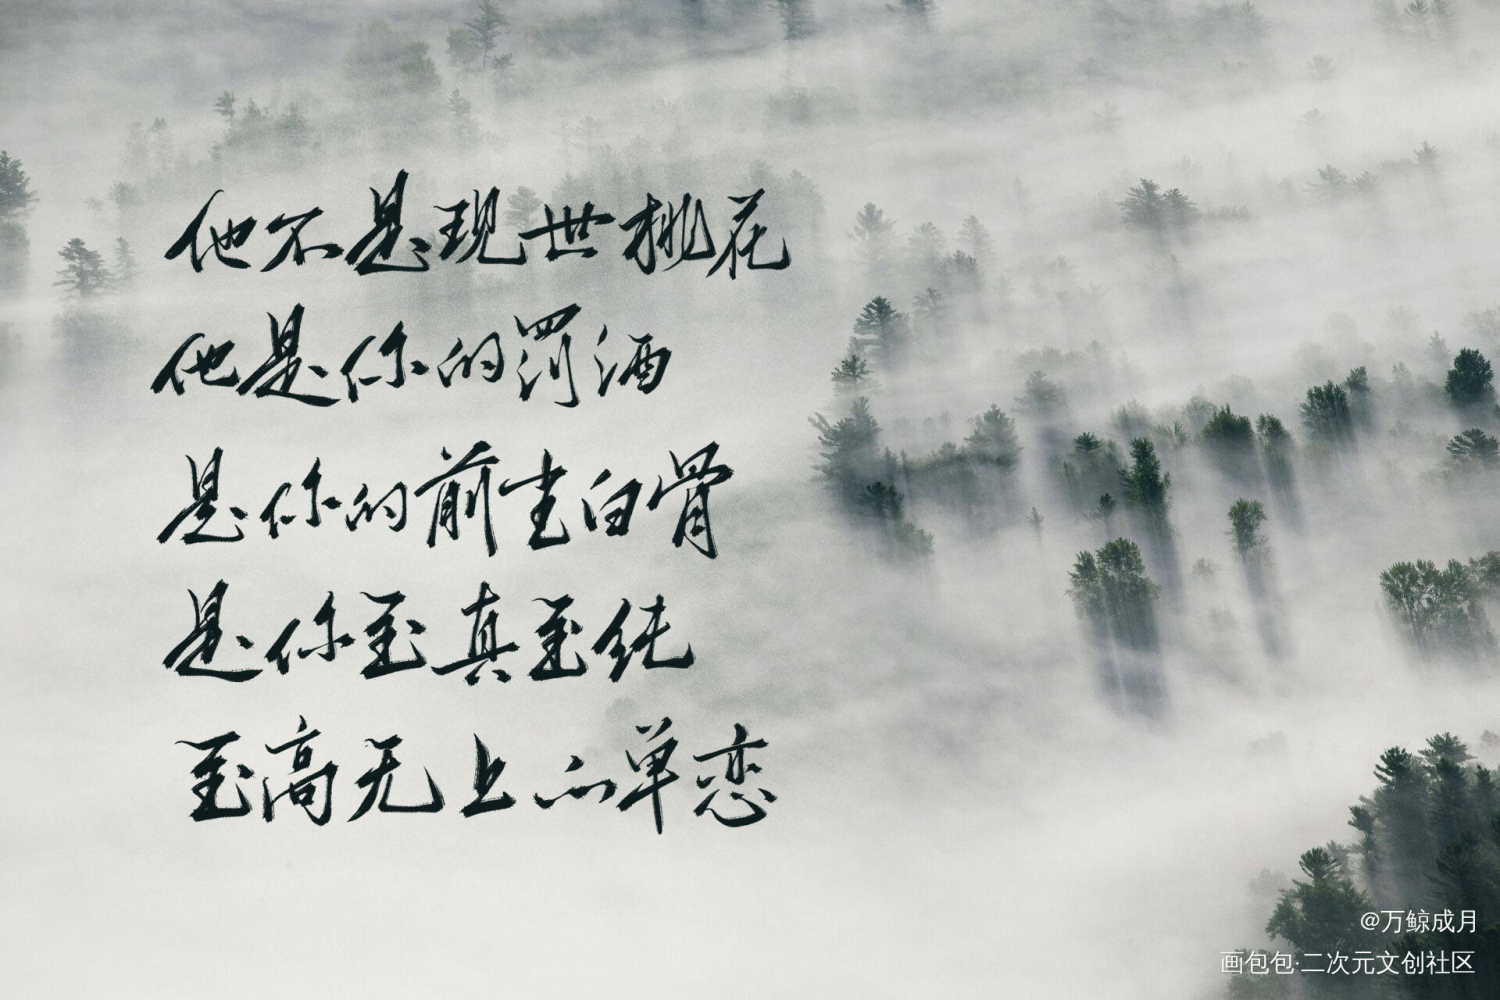 他不是现世桃花
他是你的罚酒
是你的前尘白骨
是你至真至纯
至高无上的单恋
@万鲸成月
画包包·二次元文创社区